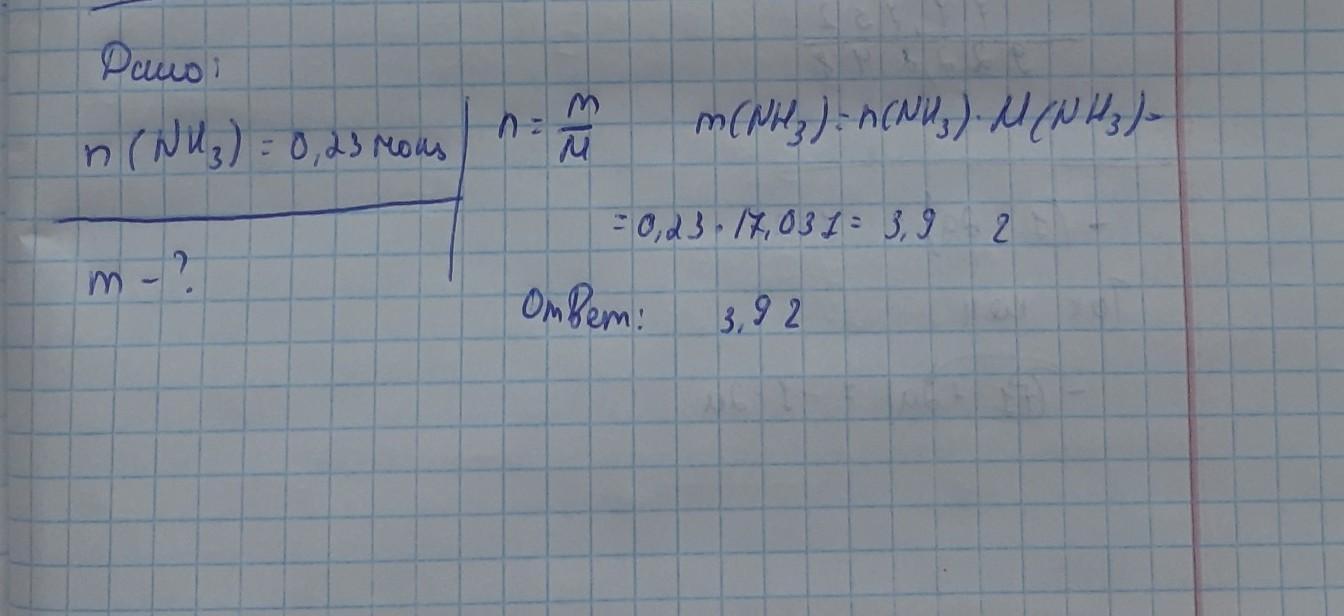 Дано:
n (NH₃) = 0,23 моль
m - ?
n = m/M m(NH₃) = n(NH₃) · M(NH₃) =
= 0,23 · 17,031 = 3,9 г
Ответ: 3,9 г